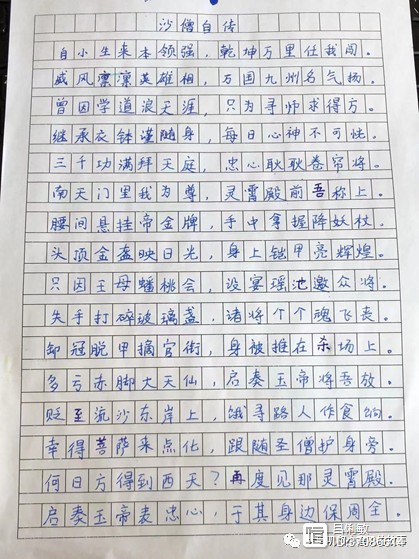 沙僧自传
自小生来本领强，乾坤万里任我闯。
威风凛凛英雄相，万国九州名气扬。
曾因学道浪天涯，只为寻师求得方。
继承衣钵谨随身，每日心神不可怯。
三千功满拜天庭，忠心耿耿卷帘将。
南天门里我为尊，灵霄殿前吾称上。
腰间悬挂帝金牌，手中拿握降妖杖。
头顶金盔映日光，身上铠甲亮辉煌。
只因王母蟠桃会，设宴瑶池邀众将。
失手打碎玻璃盏，诸将个个魂飞丧。
卸冠脱甲摘官衔，身被推在杀场上。
多亏赤脚大天仙，启奏玉帝将吾放。
贬至流沙东岸上，饿寻路人作食饷。
幸得菩萨来点化，跟随圣僧护身旁。
何日方得到西天？再度见那灵霄殿。
启奏玉帝表忠心，于其身边保周全。